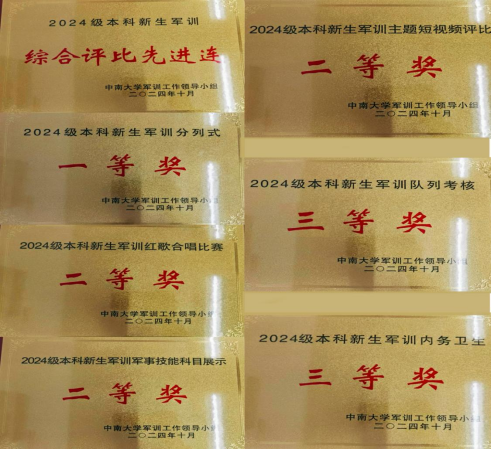 2024级本科新生军训
综合评比先进连
中南大学军训工作领导小组
二〇二四年十月
2024级本科新生军训分列式
一等奖
中南大学军训工作领导小组
二〇二四年十月
2024级本科新生军训红歌合唱比赛
二等奖
中南大学军训工作领导小组
二〇二四年十月
2024级本科新生军训军事技能科目展示
二等奖
中南大学军训工作领导小组
二〇二四年十月
2024级本科新生军训主题短视频评比
二等奖
中南大学军训工作领导小组
二〇二四年十月
2024级本科新生军训队列考核
三等奖
中南大学军训工作领导小组
二〇二四年十月
2024级本科新生军训内务卫生
三等奖
中南大学军训工作领导小组
二〇二四年十月